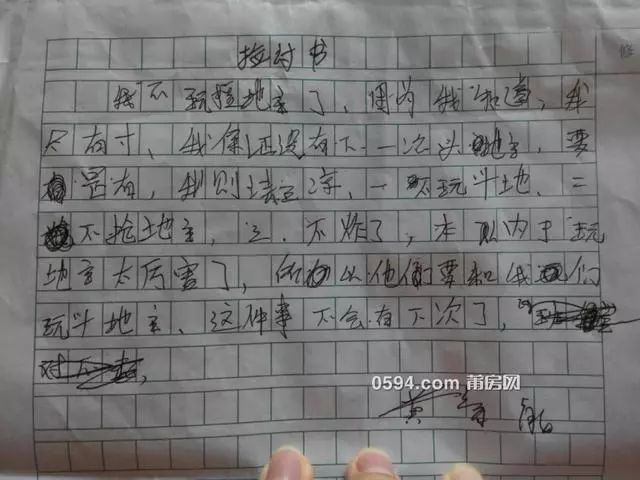 检讨书
我不玩抢地主了、因为我知道,我
只有寸、我保证没有下一次头地主、要
是有,我则法三章、一不玩斗地、二
不抢地主,三、不炸了,本以内于玩
地主太厉害了,所以他们要和我们
玩斗地主、这件事不会有下次了,
黄
0594.com 莆房网